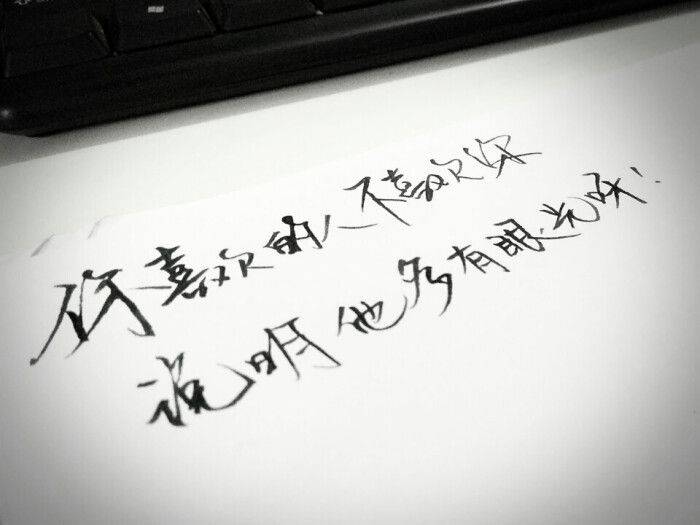 你喜欢的人不喜欢你
说明他多有眼光呀！